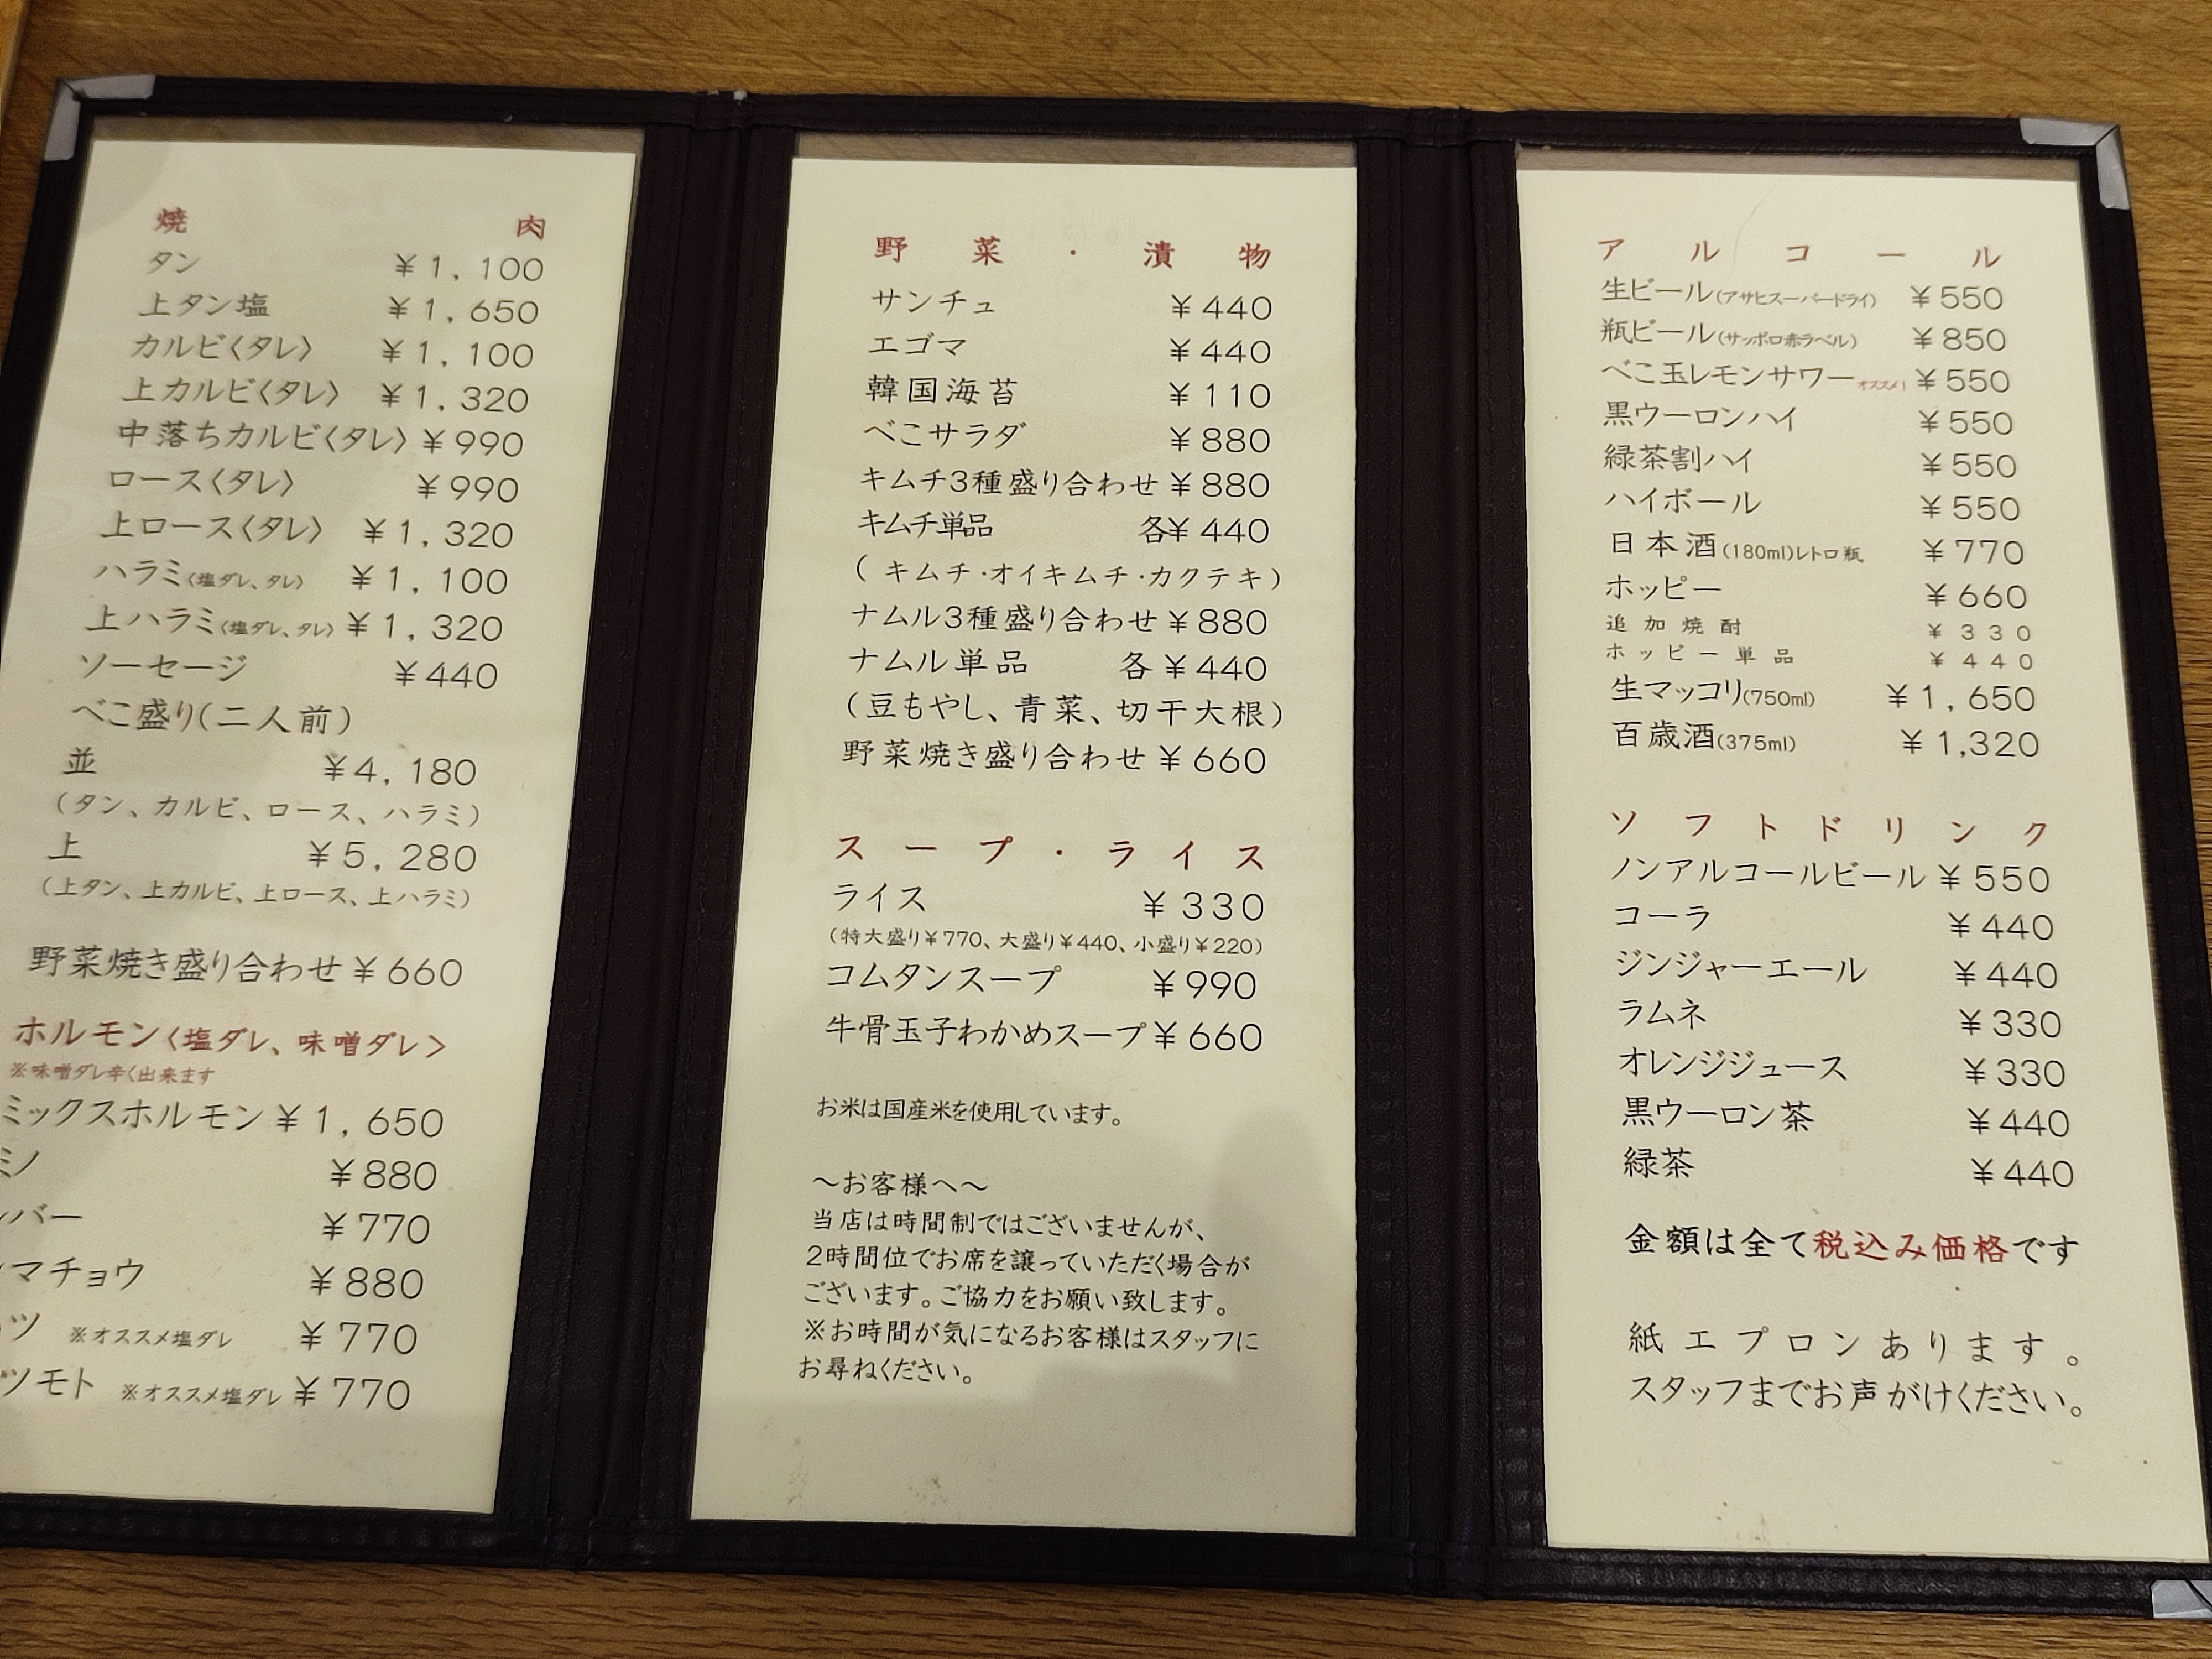 焼肉
タン ¥1,100
上タン塩 ¥1,650
カルビ〈タレ〉 ¥1,100
上カルビ〈タレ〉 ¥1,320
中落ちカルビ〈タレ〉 ¥990
ロース〈タレ〉 ¥990
上ロース〈タレ〉 ¥1,320
ハラミ〈塩ダレ、タレ〉 ¥1,100
上ハラミ〈塩ダレ、タレ〉 ¥1,320
ソーセージ ¥440
べこ盛り(二人前)
並 ¥4,180
(タン、カルビ、ロース、ハラミ)
上 ¥5,280
(上タン、上カルビ、上ロース、上ハラミ)
野菜焼き盛り合わせ ¥660
ホルモン〈塩ダレ、味噌ダレ〉
※味噌ダレ辛く出来ます
ミックスホルモン ¥1,650
ミノ ¥880
バー ¥770
マチョウ ¥880
ツ ※オススメ塩ダレ ¥770
ツモト ※オススメ塩ダレ ¥770
野菜・漬物
サンチュ ¥440
エゴマ ¥440
韓国海苔 ¥110
べこサラダ ¥880
キムチ3種盛り合わせ ¥880
キムチ単品 各¥440
(キムチ・オイキムチ・カクテキ)
ナムル3種盛り合わせ ¥880
ナムル単品 各¥440
(豆もやし、青菜、切干大根)
野菜焼き盛り合わせ ¥660
スープ・ライス
ライス ¥330
(特大盛り¥770、大盛り¥440、小盛り¥220)
コムタンスープ ¥990
牛骨玉子わかめスープ ¥660
お米は国産米を使用しています。
～お客様へ～
当店は時間制ではございませんが、
2時間位でお席を譲っていただく場合が
ございます。ご協力をお願い致します。
※お時間が気になるお客様はスタッフに
お尋ねください。
アルコール
生ビール(アサヒスーパードライ) ¥550
瓶ビール(サッポロ赤ラベル) ¥850
べこ玉レモンサワーオススメ! ¥550
黒ウーロンハイ ¥550
緑茶割ハイ ¥550
ハイボール ¥550
日本酒(180ml)レトロ瓶 ¥770
ホッピー ¥660
追加焼酎 ¥330
ホッピー単品 ¥440
生マッコリ(750ml) ¥1,650
百歳酒(375ml) ¥1,320
ソフトドリンク
ノンアルコールビール ¥550
コーラ ¥440
ジンジャーエール ¥440
ラムネ ¥330
オレンジジュース ¥330
黒ウーロン茶 ¥440
緑茶 ¥440
金額は全て税込み価格です
紙エプロンあります。
スタッフまでお声がけください。